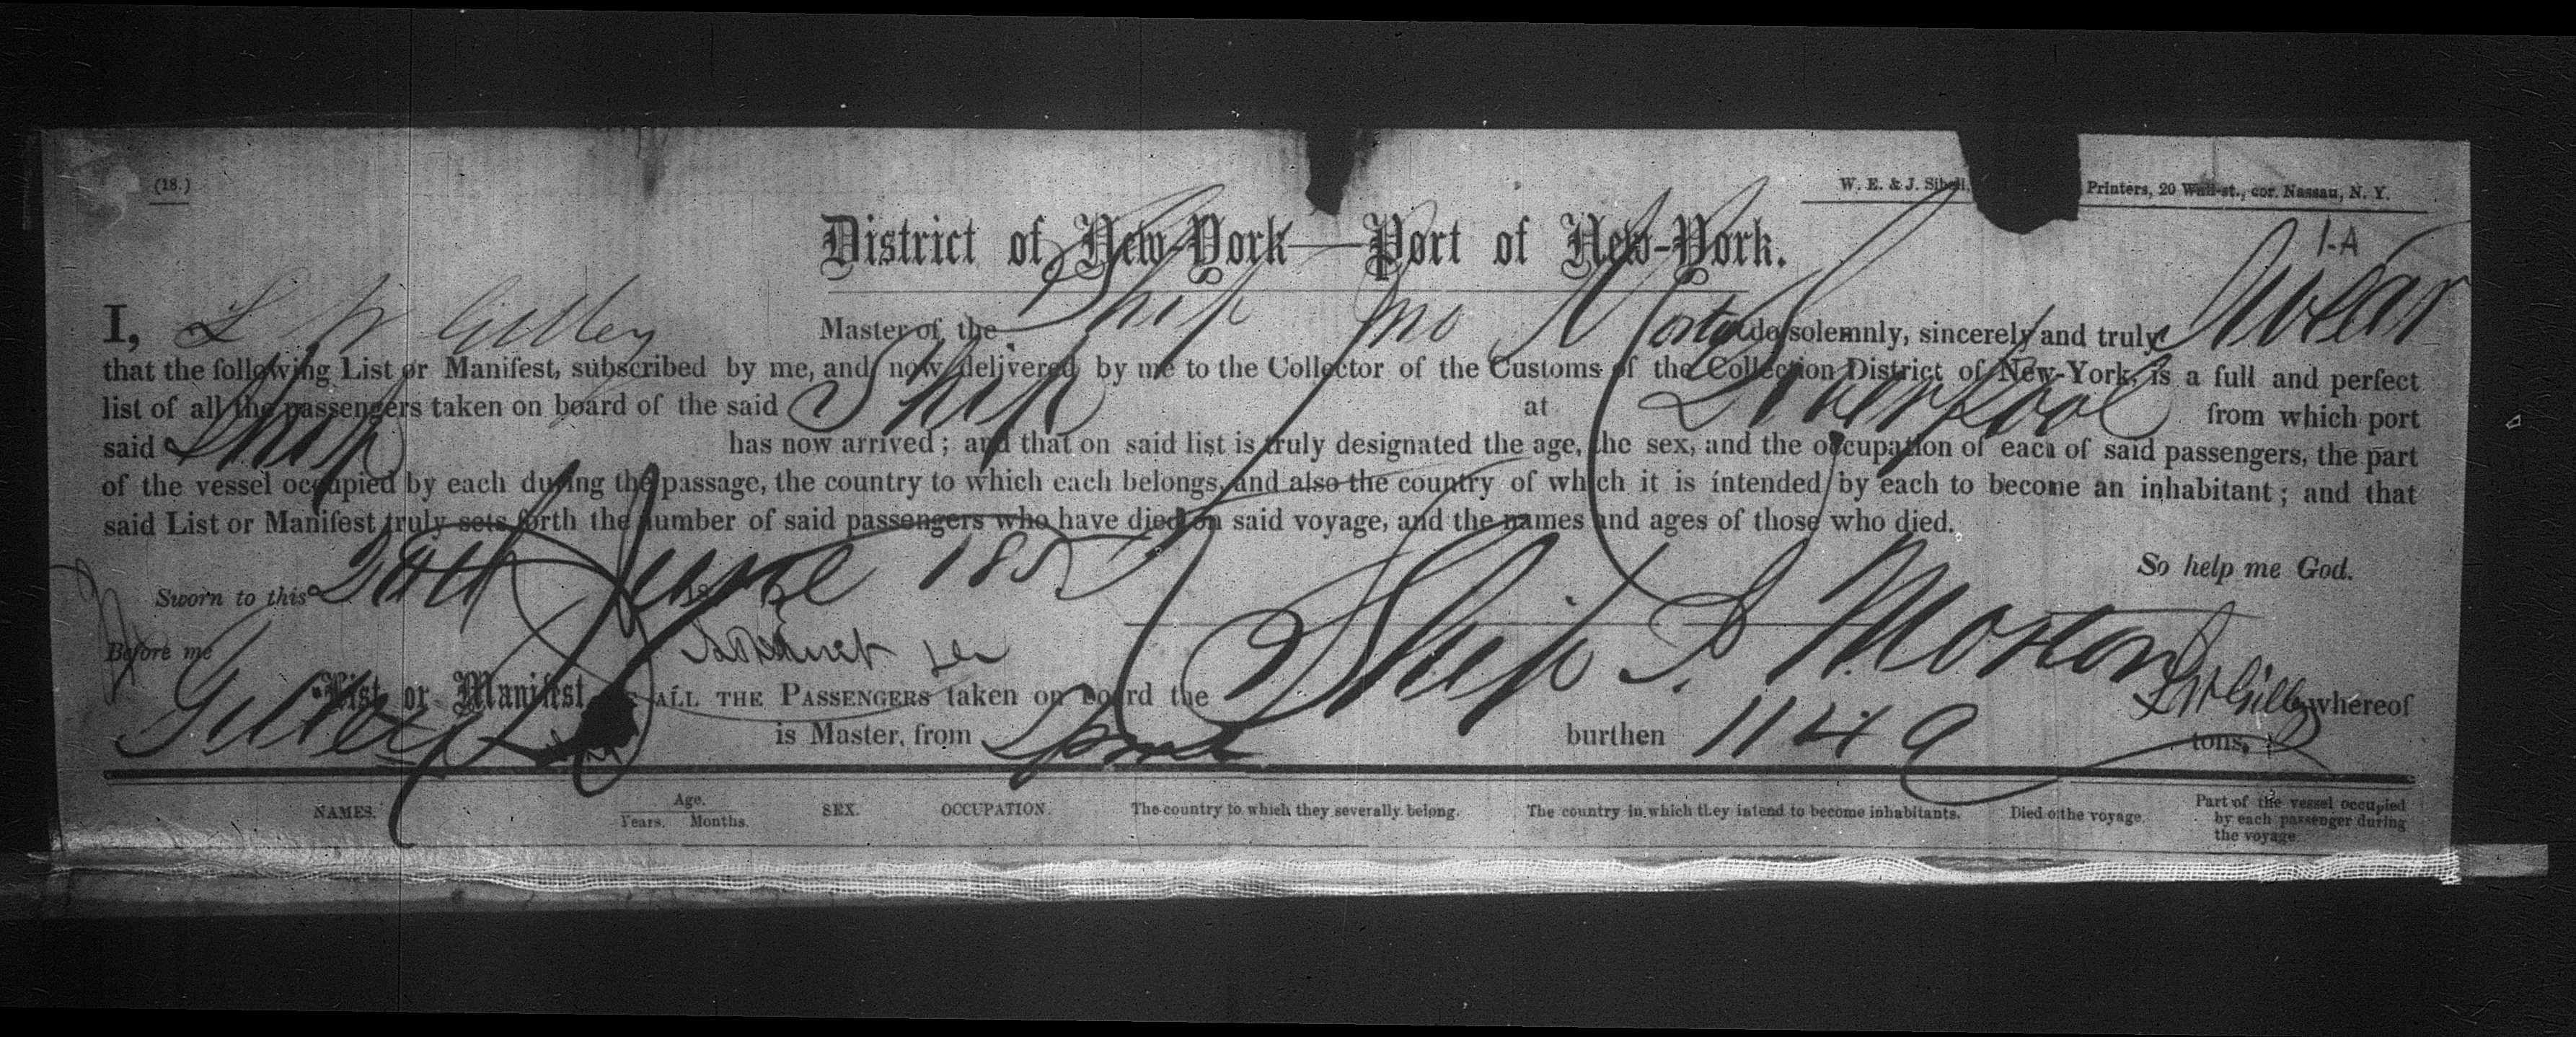 (18.)
W. E. & J. Sibell, Printers, 20 Wall-st., cor. Nassau, N. Y.
1-A
District of New-York—Port of New-York.
I, L W Gilley Master of the Ship do solemnly, sincerely and truly Swear
that the following List or Manifest, subscribed by me, and now delivered by me to the Collector of the Customs of the Collection District of New-York, is a full and perfect
list of all the passengers taken on board of the said Ship at Liverpool from which port
said Ship has now arrived; and that on said list is truly designated the age, the sex, and the occupation of each of said passengers, the part
of the vessel occupied by each during the passage, the country to which each belongs, and also the country of which it is intended by each to become an inhabitant; and that
said List or Manifest truly sets forth the number of said passengers who have died on said voyage, and the names and ages of those who died.
So help me God.
Sworn to this 24th June 185
Before me
List or Manifest ALL THE PASSENGERS taken on board the Ship Morton whereof
Gilley is Master, from burthen 1149 tons.
NAMES. Age. Years. Months. SEX. OCCUPATION. The country to which they severally belong. The country in which they intend to become inhabitants. Died o the voyage. Part of the vessel occupied by each passenger during the voyage